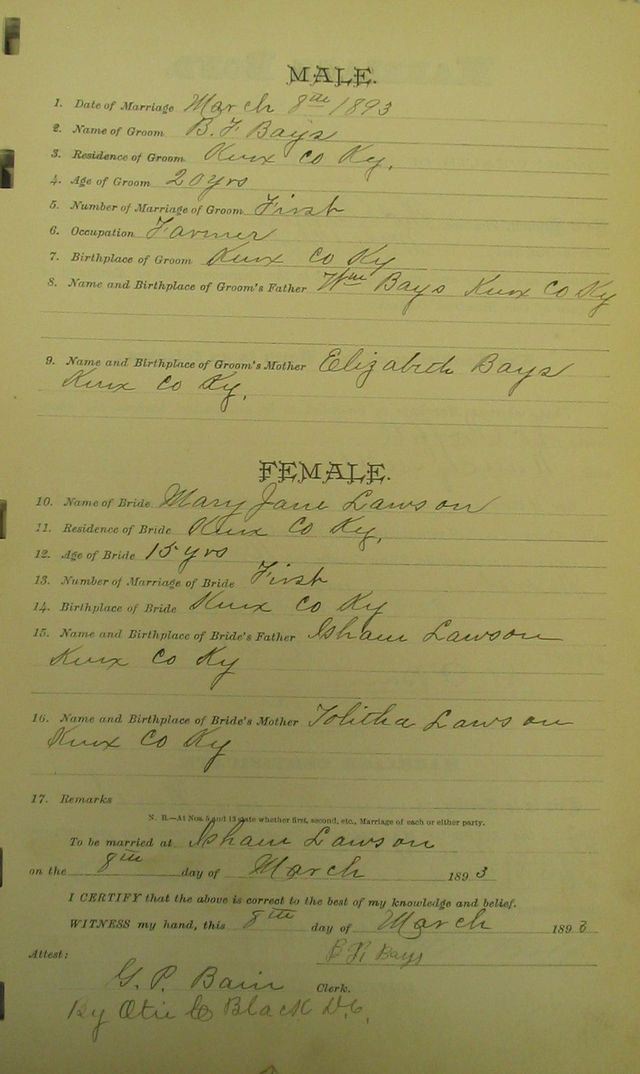 MALE.
1. Date of Marriage March 8th 1893
2. Name of Groom B. F. Bays
3. Residence of Groom Knox Co Ky.
4. Age of Groom 20 yrs
5. Number of Marriage of Groom First
6. Occupation Farmer
7. Birthplace of Groom Knox Co Ky
8. Name and Birthplace of Groom's Father Wm Bays Knox Co Ky
9. Name and Birthplace of Groom's Mother Elizabeth Bays
Knox Co Ky.
FEMALE.
10. Name of Bride Mary Jane Lawson
11. Residence of Bride Knox Co Ky.
12. Age of Bride 15 yrs
13. Number of Marriage of Bride First
14. Birthplace of Bride Knox Co Ky
15. Name and Birthplace of Bride's Father Isham Lawson
Knox Co Ky
16. Name and Birthplace of Bride's Mother Tolitha Lawson
Knox Co Ky
17. Remarks
N. B.—At Nos. 5 and 13 state whether first, second, etc., Marriage of each or either party.
To be married at Isham Lawson
on the 8th day of March 1893
I CERTIFY that the above is correct to the best of my knowledge and belief.
WITNESS my hand, this 8th day of March 1893
Bays
Attest:
G. P. Bain Clerk.
By Otie Black D.C.